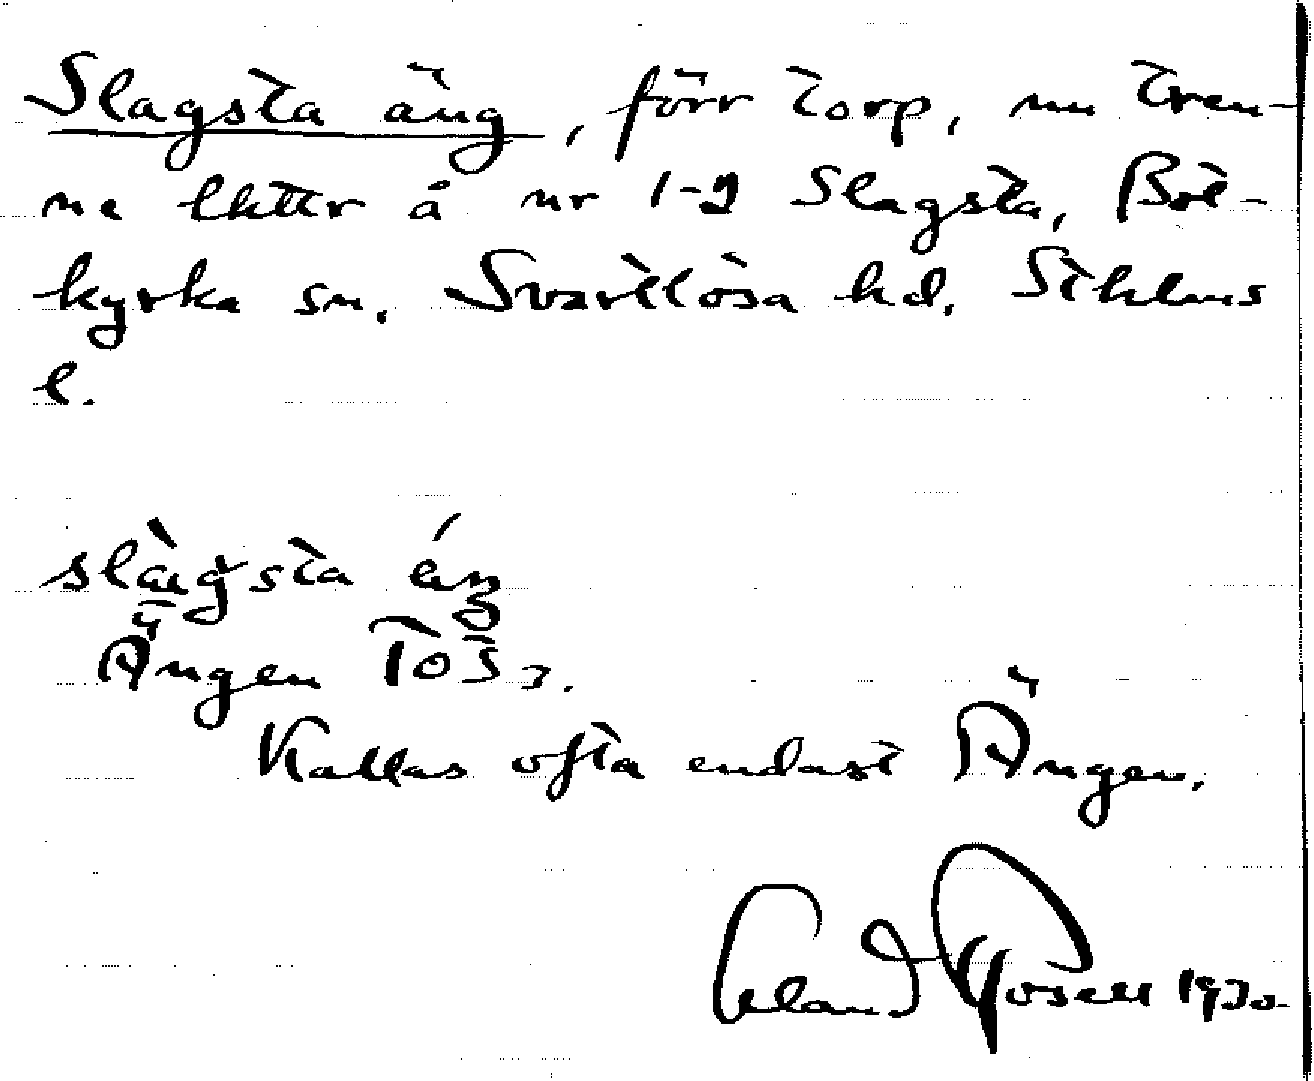 Slagsta äng, förr torp, nu tren-
ne lhttr å nr 1-2 Slagsta, Bot-
kyrka sn. Svartlösa hd. Sthlms
l.
slàgsta éŋ
Ängen Tös.
Kallas ofta endast Ängen.
Erland Rosell 1930